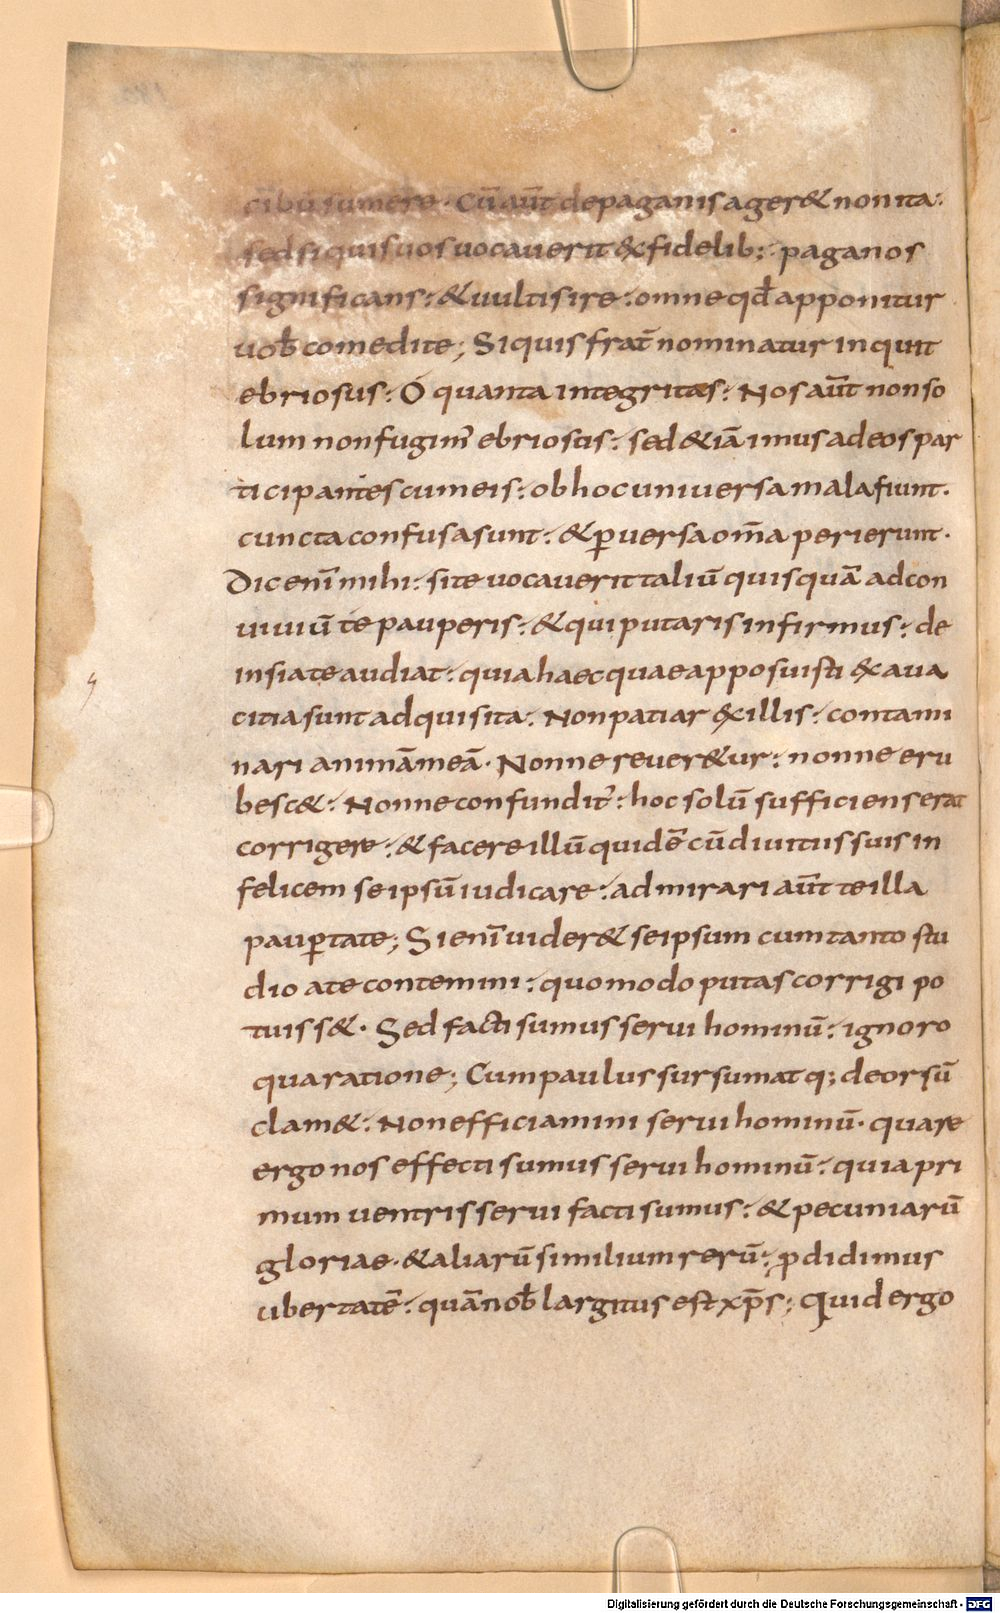 cibū sumere · Cū aūt de paganis ager& non ita:
sed si quis uos uocauerit ex fidelib; · paganos
significans: & uultis ire: omne qđ apponitur
uob̄ comedite; Si quis frat̄ nominatur inquit
ebriosus: O quanta integritas: Nos aūt non so
lum non fugim' ebriosus: sed &iā imus ad eos par
ticipantes cum eis: ob hoc uniuersa mala fiunt·
cuncta confusa sunt: & ꝑuersa om̄a perierunt·
Dic enī mihi: si te uocauerit taliū quisquā ad con
uiuiū te pauperis: & qui putaris infirmus: de
insi a te audiat: quia haec quae apposuisti ex aua
citia sunt adquisita: Non patiar ex illis: contami
nari animā meā· Nonne reuer&ur: nonne eru
besc&: Nonne confundit': hoc solū sufficiens erat
corrigere: & facere illū quidē cū diuitiis suis in
felicem se ipsū iudicare: admirari aūt te illa
pauꝑtate; Si enī uider& se ipsum cum tanto stu
dio a te contemini: quomodo putas corrigi po
tuiss&· Sed facti sumus serui hominū: ignoro
qua ratione; Cum paulus sursum atq; deorsū
clam&: Non efficiamini serui hominū· quare
ergo nos effecti sumus serui hominū: quia pri
mum uentris serui facti sumus: & pecuniarū
gloriae· & aliarū similium rerū: ꝑdidimus
ubertatē: quā nob̄ largitus est xp̄s; Quid ergo
Digitalisierung gefördert durch die Deutsche Forschungsgemeinschaft - DFG